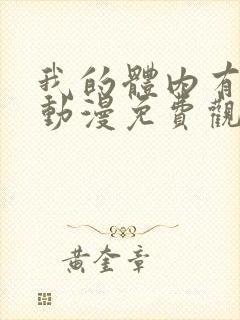 我的體内有
動漫免費觀
黃奎章